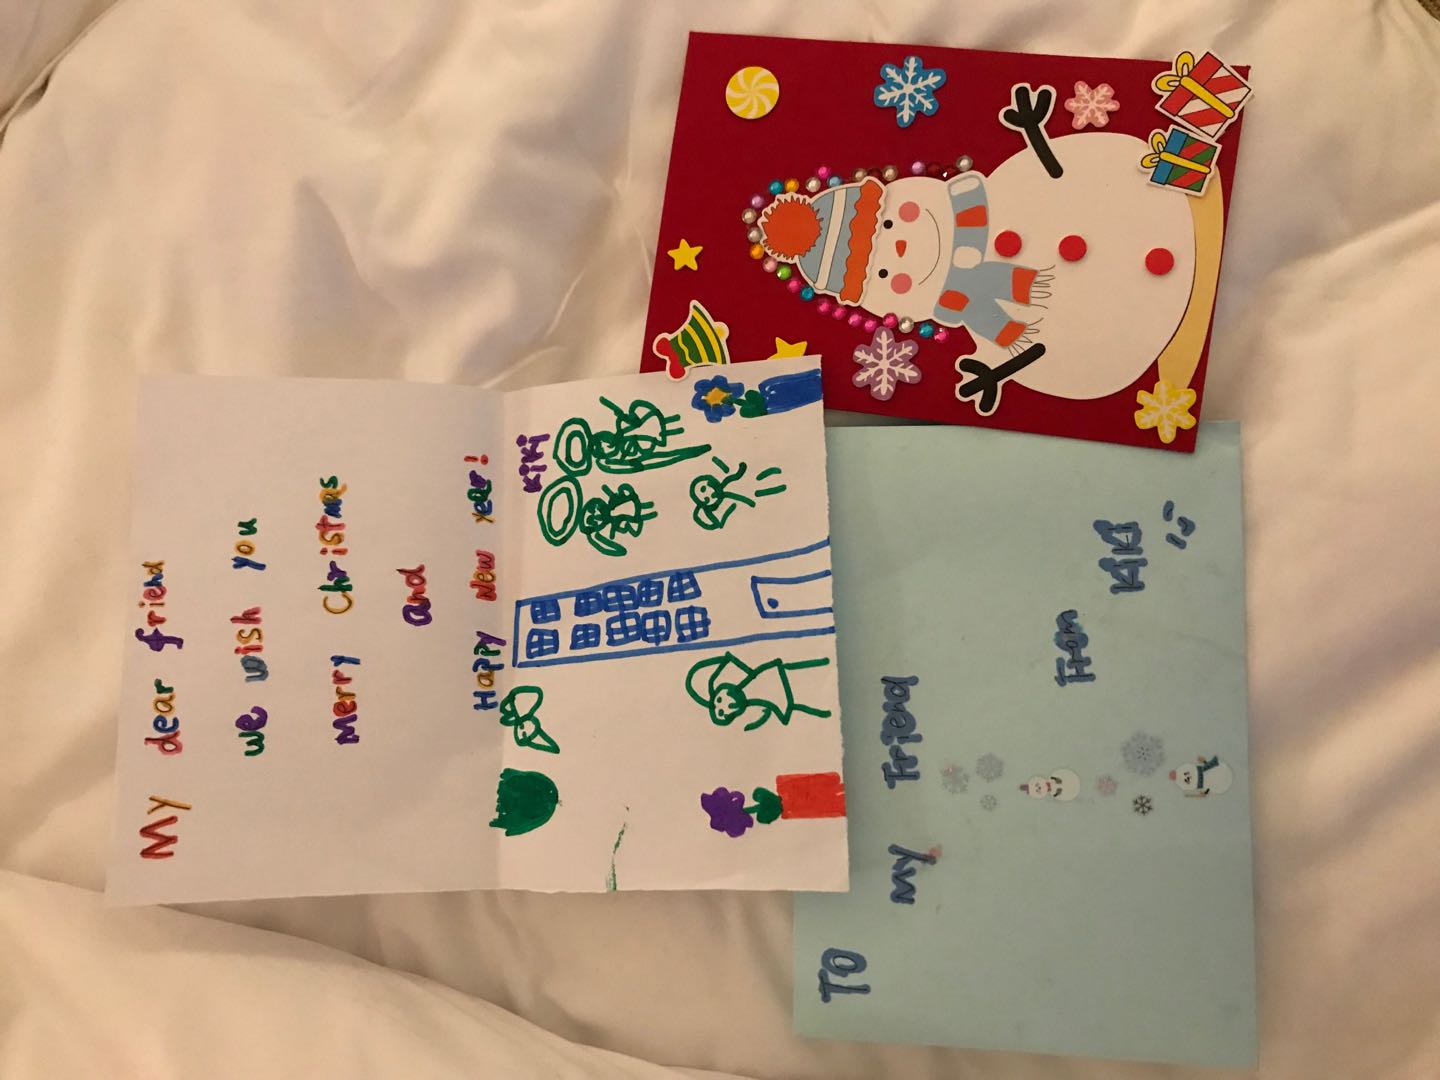 My dear friend
we wish you
Merry Christmas
and
Happy New Year!
KiKi
TO
My Friend
From
KiKi